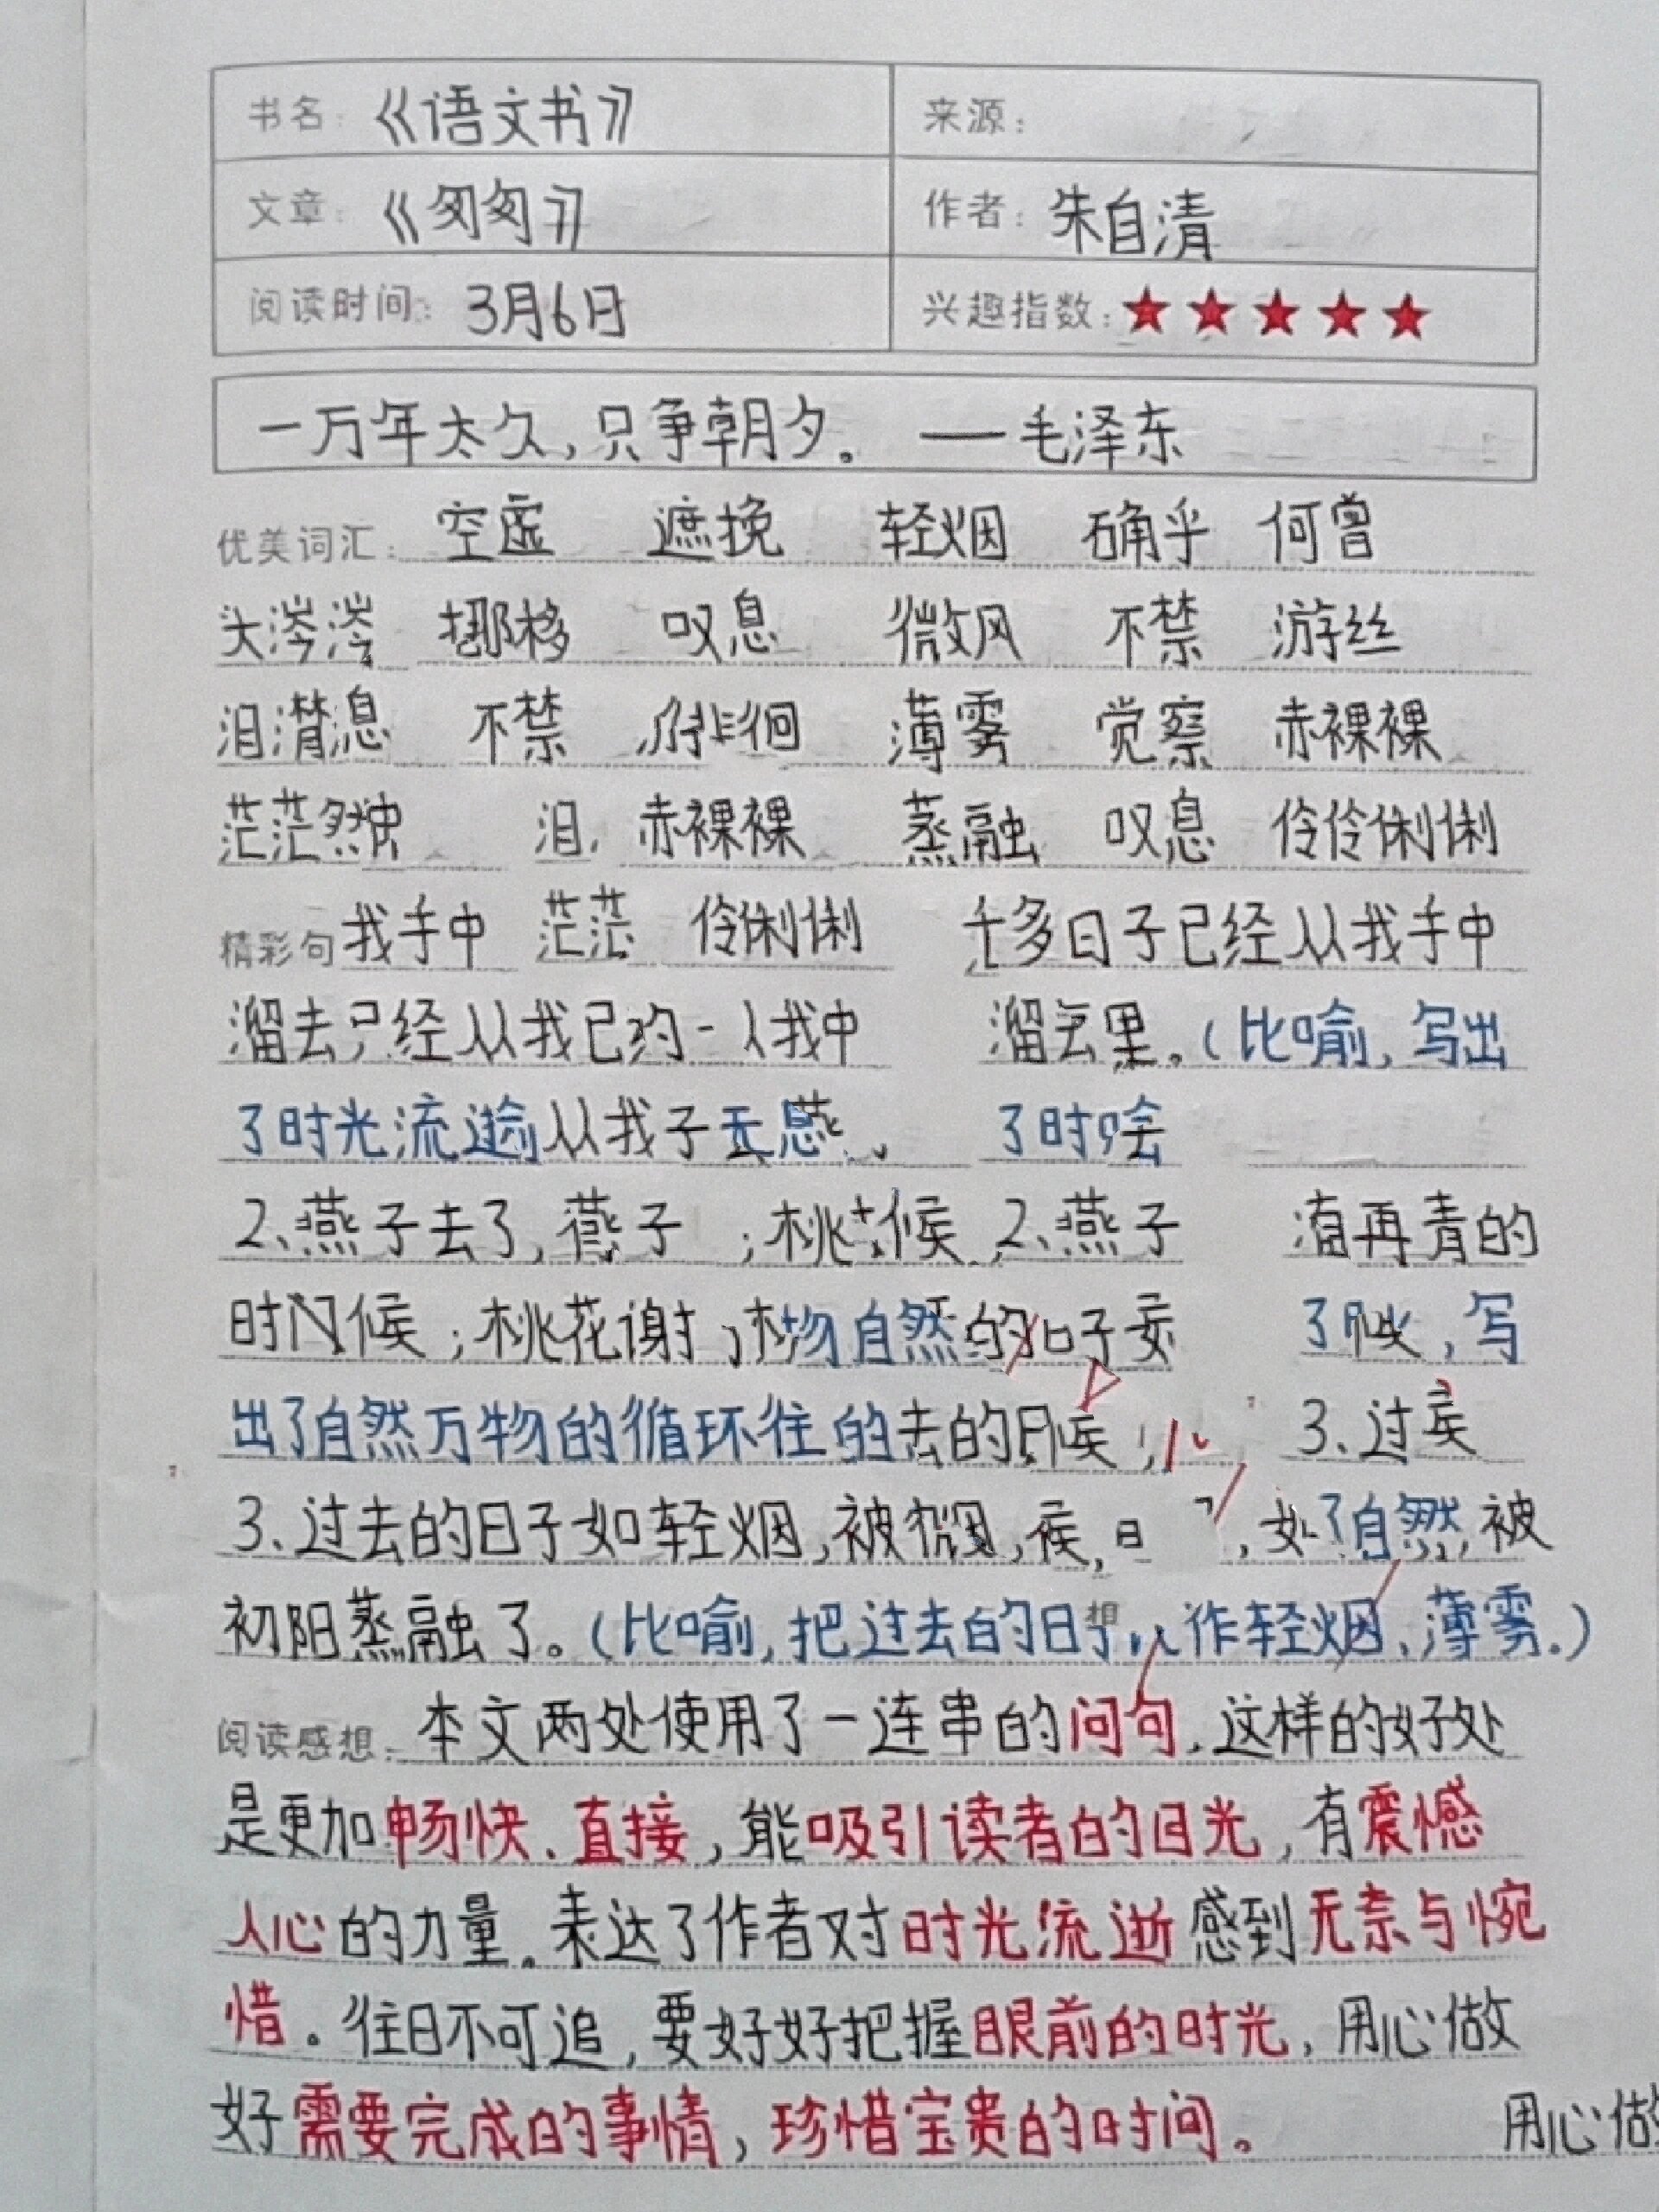 书名：《语文书》 来源：
文章：《匆匆》 作者：朱自清
阅读时间：3月6日 兴趣指数：★★★★★
一万年太久，只争朝夕。——毛泽东
优美词汇：空虚 遮挽 轻烟 确乎 何曾
头涔涔 挪移 叹息 微风 不禁 游丝
泪潸息 不禁 徘徊 薄雾 觉察 赤裸裸
茫茫然 泪 赤裸裸 蒸融 叹息 伶伶俐俐
精彩句 我手中 茫茫 伶俐俐 千多日子已经从我手中
溜去 经从我已 我中 溜去里。（比喻，写出
了时光流逝 从我子无 了时
2、燕子去了，燕子 ；桃 候 2、燕子 再青的
时 候；桃花谢了 物自然的 子 了 ，写
出了自然万物的循环往的去的 3、过
3、过去的日子如轻烟，被 ，日 ，如了自然，被
初阳蒸融了。（比喻，把过去的日 作轻烟、薄雾。）
阅读感想：本文两处使用了一连串的问句，这样的好处
是更加畅快、直接，能吸引读者的目光，有震憾
人心的力量。表达了作者对时光流逝感到无奈与惋
惜。往日不可追，要好好把握眼前的时光，用心做
好需要完成的事情，珍惜宝贵的时间。 用心做